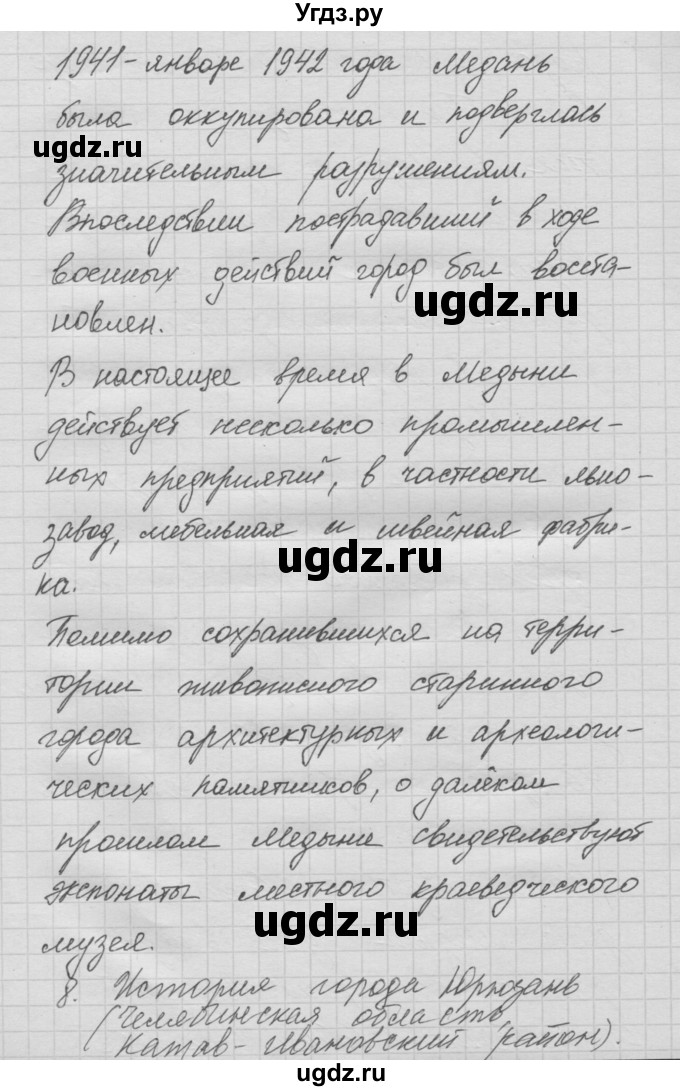 Угдз.ру
1941-январе 1942 года Медань
была оккупирована и подверглась
ugdz.ru
значительным разрушениям.
Впоследствии пострадавший в ходе
военных действий город был восста-
ugdz.ru
новлен.
В настоящее время в Медыни
действует несколько промышлен-
ных предприятий, в частности льно-
завод, мебельная и швейная фабри-
ugdz.ru
ка.
Помимо сохранившихся на терри-
тории живописного старинного
города архитектурных и археологи-
ческих памятников, о далёком
ugdz.ru
прошлом Медыни свидетельствуют
экспонаты местного краеведческого
ugdz.ru
музея.
8. История города Юрюзань
(Челябинская область,
Катав-Ивановский район).
ugdz.ru
ugdz.ru